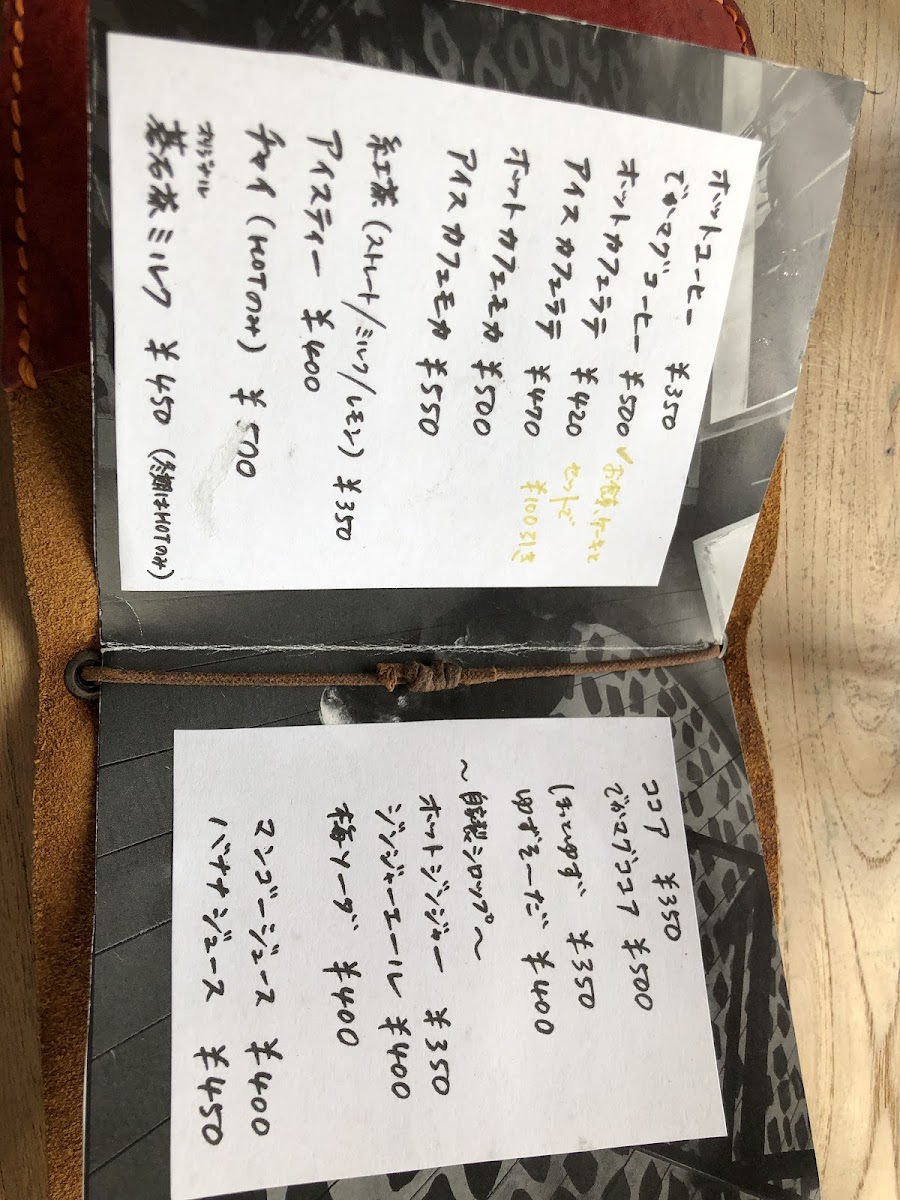 ホットコーヒー ¥350
でかマグコーヒー ¥500
ホットカフェラテ ¥420
アイスカフェラテ ¥470
ホットカフェモカ ¥500
アイスカフェモカ ¥550
✓お食事、ケーキと
セットで
¥100引き
紅茶(ストレート/ミルク/レモン) ¥350
アイスティー ¥400
チャイ(HOTのみ) ¥500
オリジナル
碁石茶ミルク ¥450 (冬期はHOTのみ)
ココア ¥350
でかマグココア ¥500
ほっとゆず ¥350
ゆずそーだ ¥400
~自家製シロップ~
ホットジンジャー ¥350
ジンジャーエール ¥400
梅ソーダ ¥400
マンゴージュース ¥400
バナナジュース ¥450